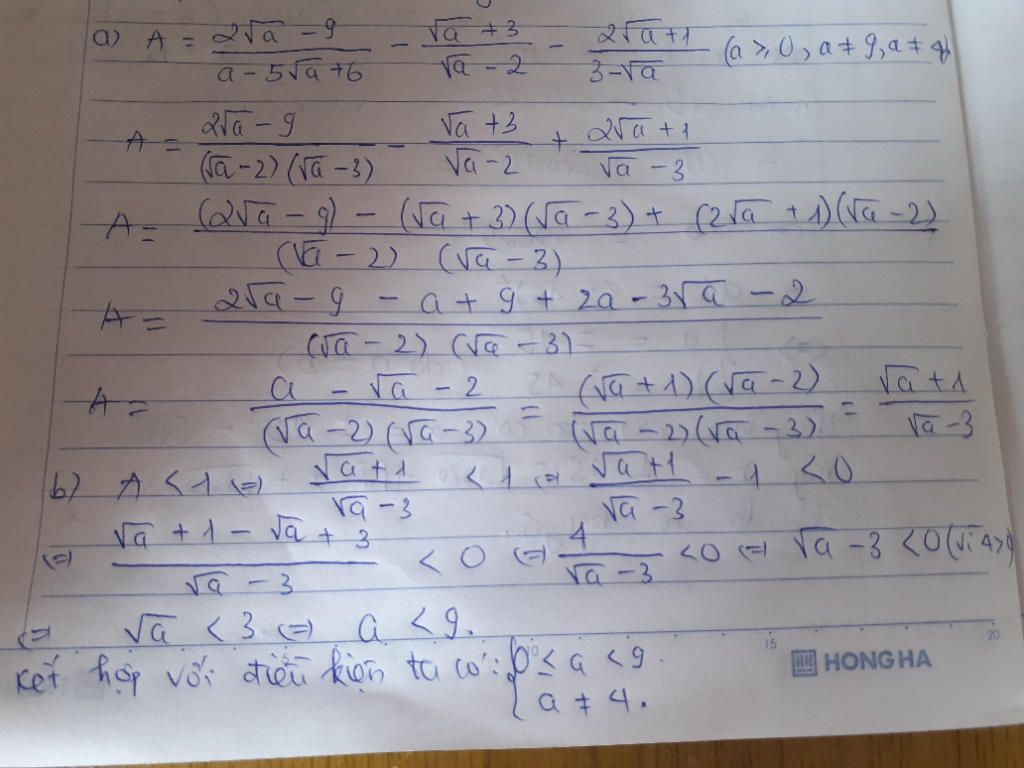 a) A = (2√a - 9)/(a - 5√a + 6) - (√a + 3)/(√a - 2) - (2√a + 1)/(3 - √a) (a ≥ 0, a ≠ 9, a ≠ 4)
A = (2√a - 9)/((√a - 2)(√a - 3)) - (√a + 3)/(√a - 2) + (2√a + 1)/(√a - 3)
A = ((2√a - 9) - (√a + 3)(√a - 3) + (2√a + 1)(√a - 2))/((√a - 2)(√a - 3))
A = (2√a - 9 - a + 9 + 2a - 3√a - 2)/((√a - 2)(√a - 3))
A = (a - √a - 2)/((√a - 2)(√a - 3)) = ((√a + 1)(√a - 2))/((√a - 2)(√a - 3)) = (√a + 1)/(√a - 3)
b) A < 1 ⇔ (√a + 1)/(√a - 3) < 1 ⇔ (√a + 1)/(√a - 3) - 1 < 0
⇔ (√a + 1 - √a + 3)/(√a - 3) < 0 ⇔ 4/(√a - 3) < 0 ⇔ √a - 3 < 0 (vì 4 > 0)
⇔ √a < 3 ⇔ a < 9.
kết hợp với điều kiện ta có: { 0 ≤ a < 9.
a ≠ 4.
10 15 20
HONG HA